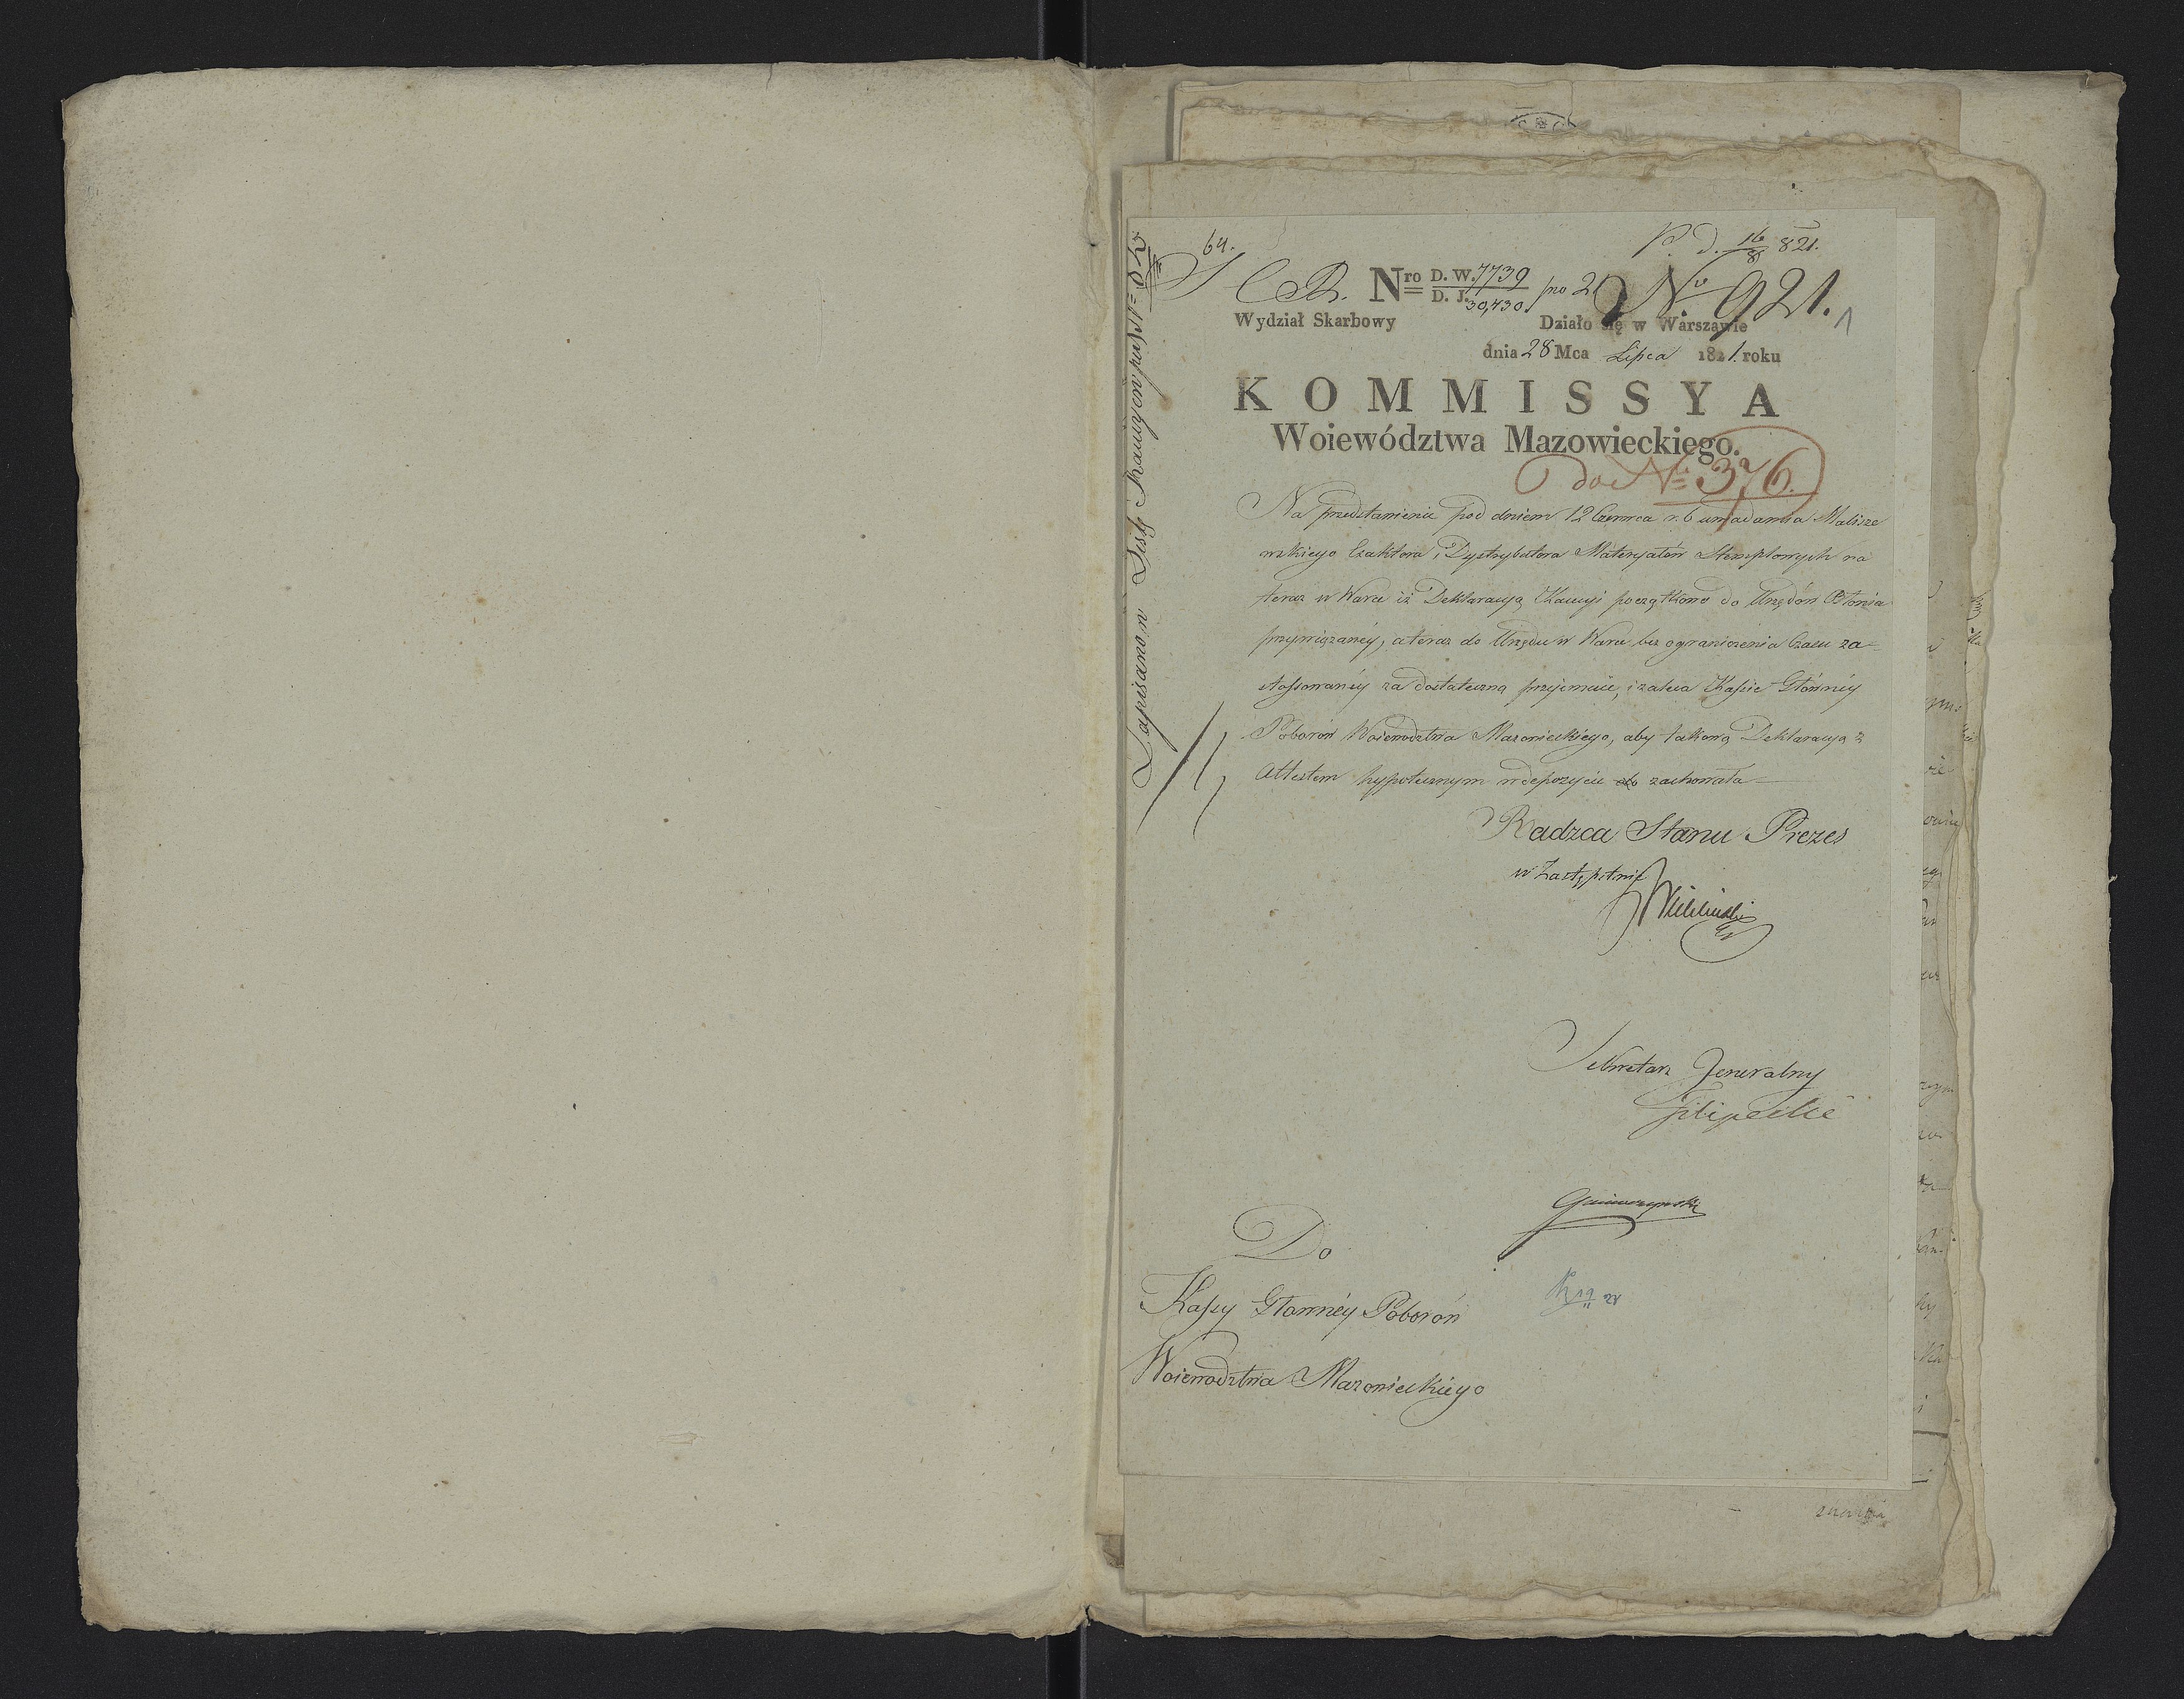 64.
P. d. 16/8 821.
C R. Nro D. W. 7739 / D. J. 30,730 po 21
No 921.
1
Wydział Skarbowy
Działo się w Warszawie
dnia 28 Mca Lipca 1821. roku
KOMMISSYA
Woiewództwa Mazowieckiego.
do No 376.
Na przedstawienie pod dniem 12 Czerwca r. b uwiadamia Malisze
wskiego Exaktora i Dystrybutora Materyałów Stemplowych na
teraz w Warce iż Deklaracyą Kaucyi początkowo do Urzędów Błonia
przywiązaney, a teraz do Urzędu w Warce bez ograniczenia Czasu za=
stossowaney za dostateczną przyjmuie, i zaleca Kassie Główney
Poborów Woiewodztwa Mazowieckiego, aby takową Deklaracyą z
Attestem hyppotecznym w depozycie zachowała=
Radzca Stanu Prezes
w Zastępstwie
Sekretarz Jeneralny
Filipecki
Do
Kassy Główney Poborów
Woiewodztwa Mazowieckiego
Zapisano w Listę Kaucyow